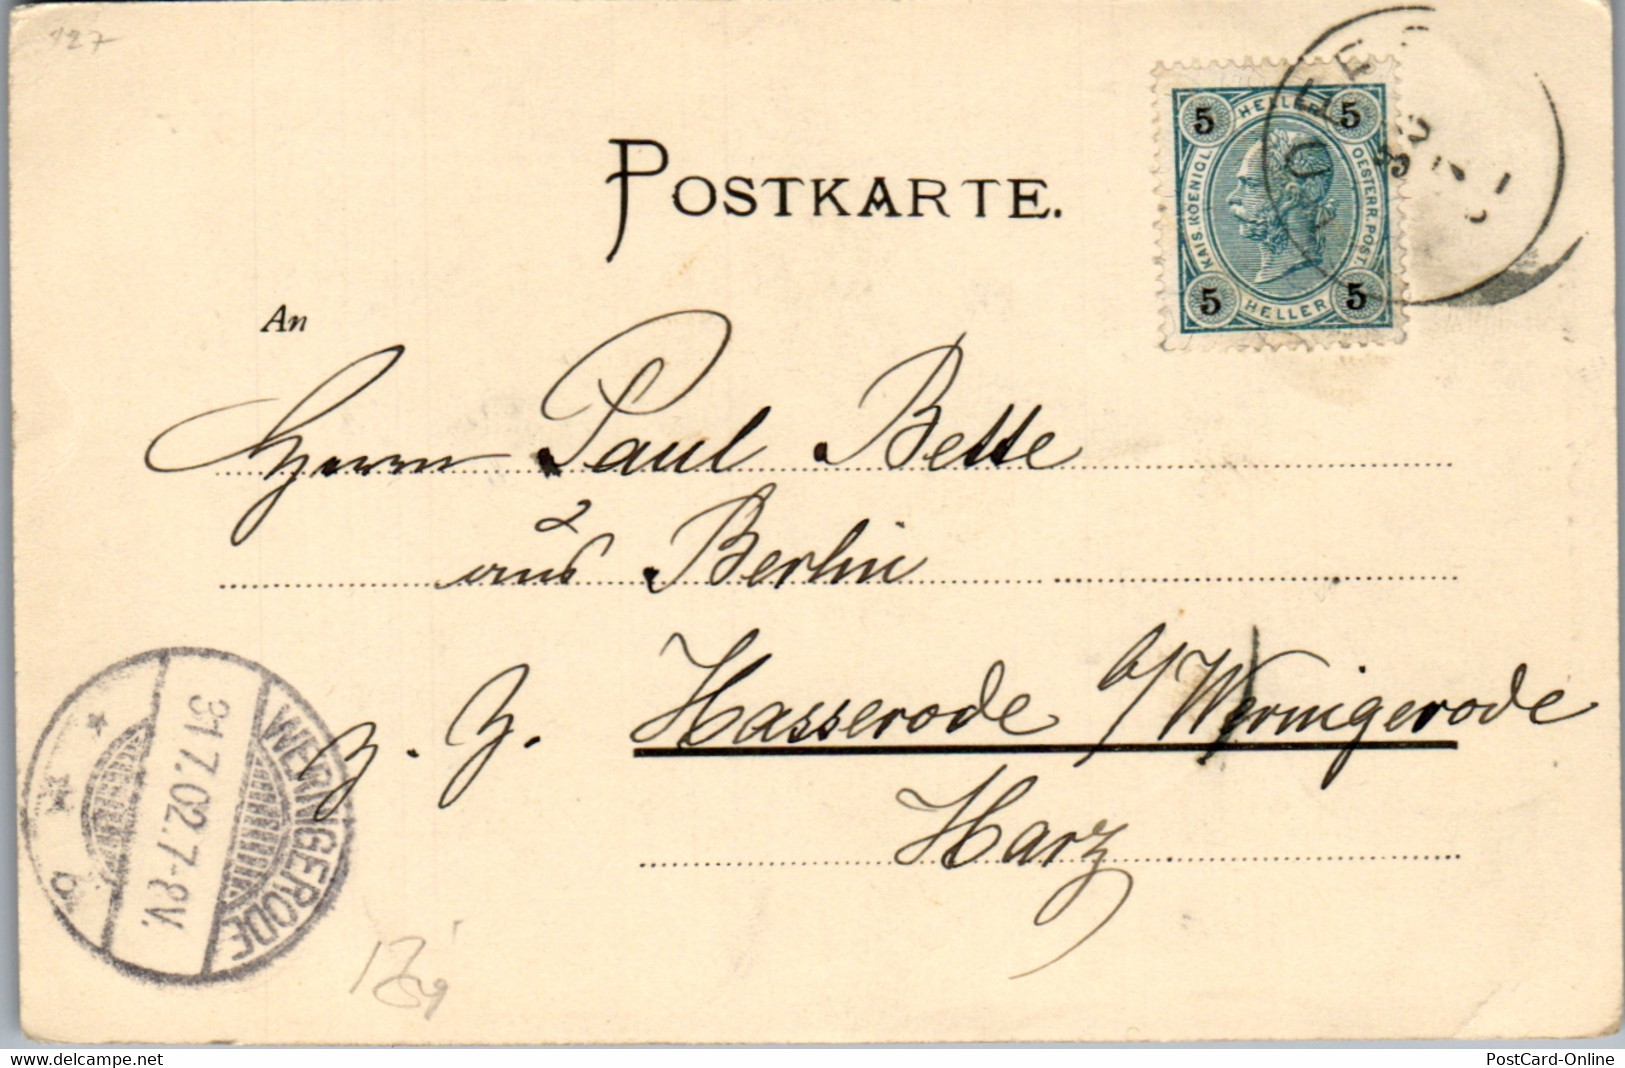 127
POSTKARTE.
5 HELLER 5
KAIS. KOENIGL.
OESTERR. POST.
5 HELLER 5
An
Herrn Paul Bette
aus Berlin
z. Z. Hasserode b/Wernigerode
Harz
WERNIGERODE
31.7.02.7-8V.
* *
delcampe.net
PostCard-Online